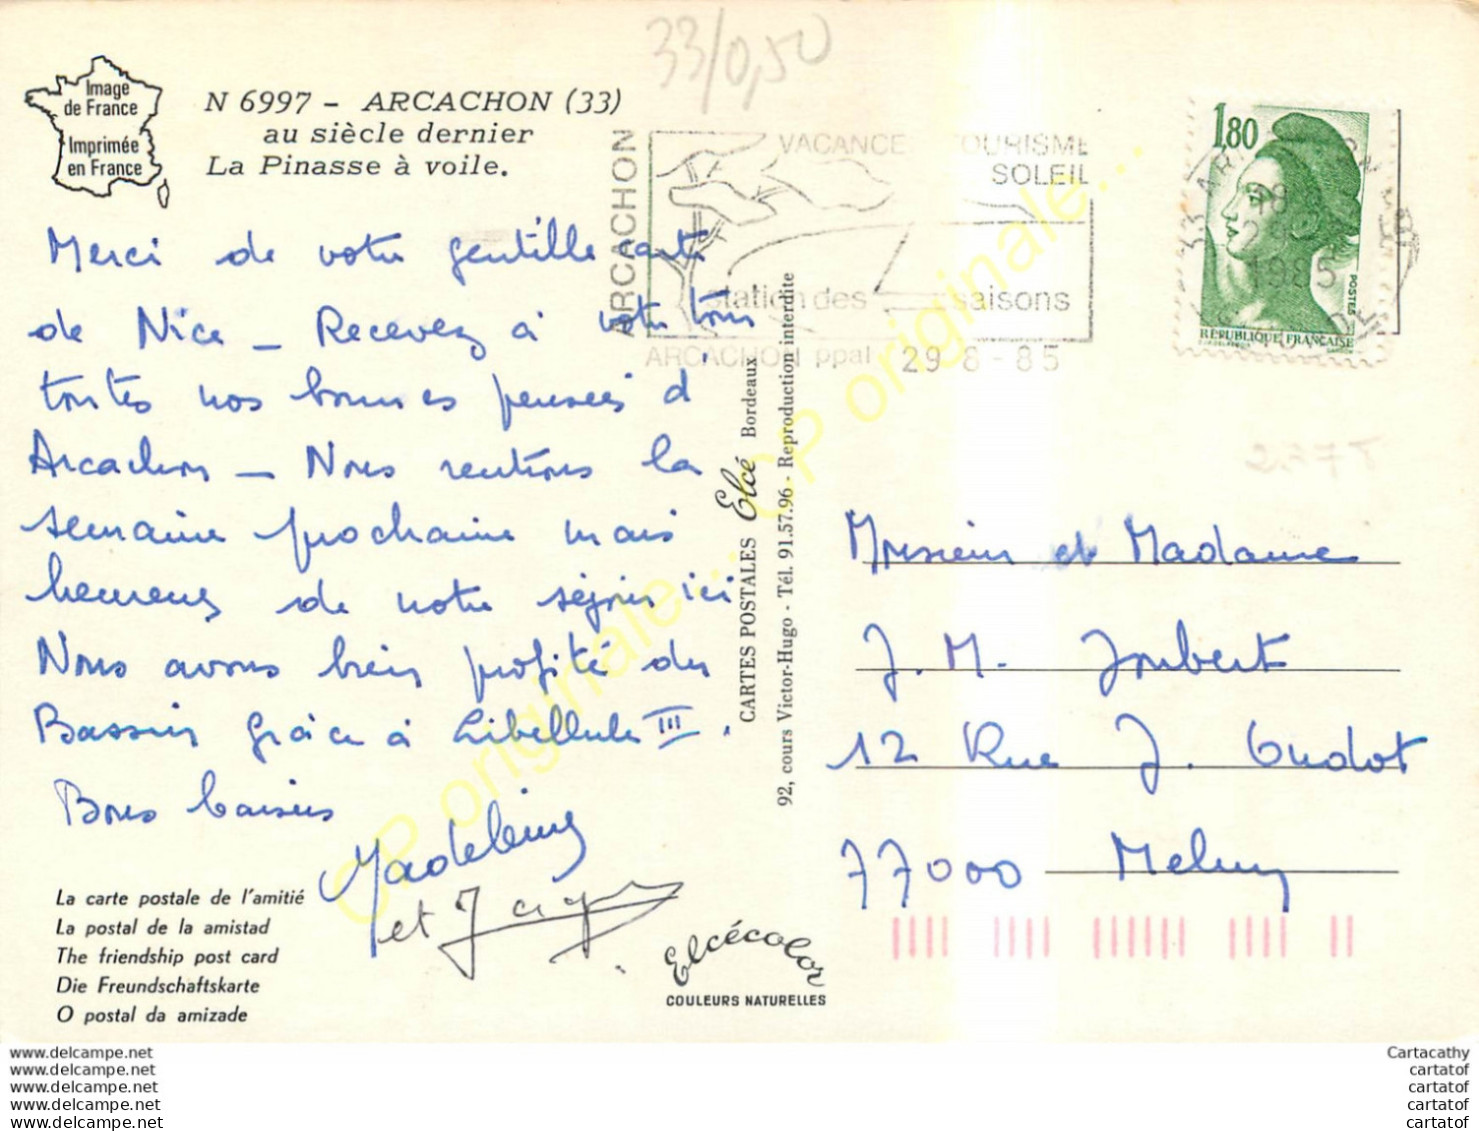 33/0,50
Image
de France
Imprimée
en France
N 6997 - ARCACHON (33)
au siècle dernier
La Pinasse à voile.
ARCACHON
VACANCES TOURISME
SOLEIL
station des saisons
ARCACHON ppal 29 8 - 85
1,80
POSTES
RÉPUBLIQUE FRANÇAISE
1985
Merci de votre gentille carte
de Nice _ Recevez à votre tour
toutes nos bonnes pensées d'
Arcachon _ Nous rentrons la
semaine prochaine mais
heureux de notre séjour ici
Nous avons bien profité du
Bassin grâce à Libellule III.
Bons baisers
Madeleine
et
CARTES POSTALES Elcé Bordeaux
92, cours Victor-Hugo - Tél. 91.57.96 - Reproduction interdite
Monsieur et Madame
J. M. Joubert
12 Rue J. Oudot
77000 Melun
La carte postale de l'amitié
La postal de la amistad
The friendship post card
Die Freundschaftskarte
O postal da amizade
Elcécolor
COULEURS NATURELLES
CP originale... CP originale...
www.delcampe.net
www.delcampe.net
www.delcampe.net
www.delcampe.net
www.delcampe.net
Cartacathy
cartatof
cartatof
cartatof
cartatof